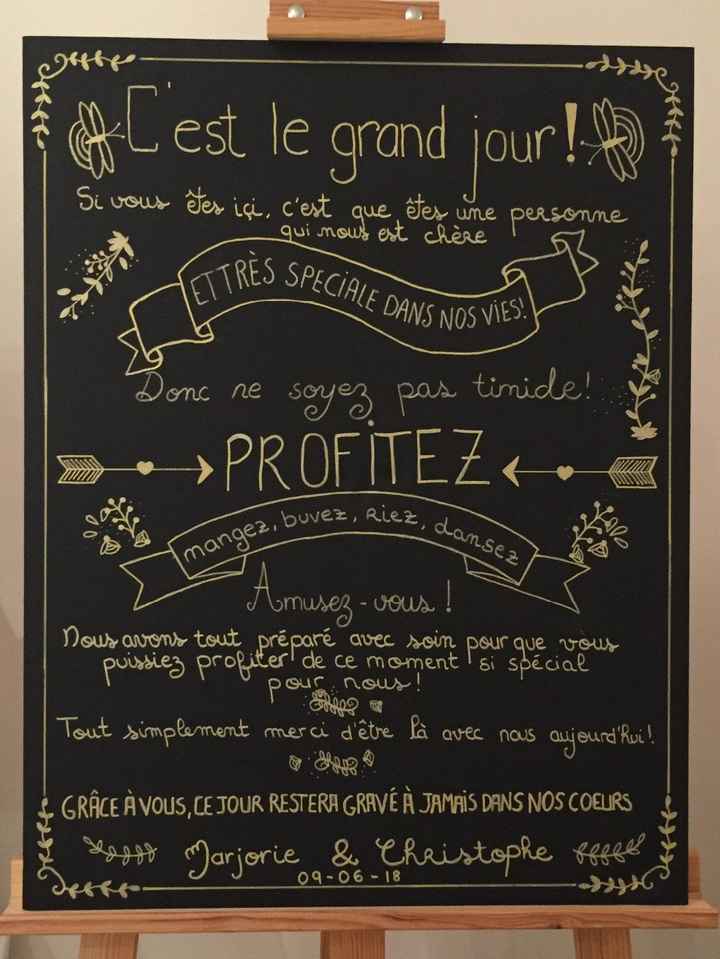 C'est le grand jour!
Si vous êtes içi, c'est que êtes une personne
qui nous est chère
ET TRÈS SPECIALE DANS NOS VIES!
Donc ne soyez pas timide!
PROFITEZ
mangez, buvez, Riez, dansez
Amusez-vous!
Nous avons tout préparé avec soin pour que vous
puissiez profiter de ce moment si spécial
pour nous!
Tout simplement merci d'être là avec nous aujourd'hui!
GRÂCE À VOUS, CE JOUR RESTERA GRAVÉ À JAMAIS DANS NOS COEURS
Marjorie & Christophe
09-06-18